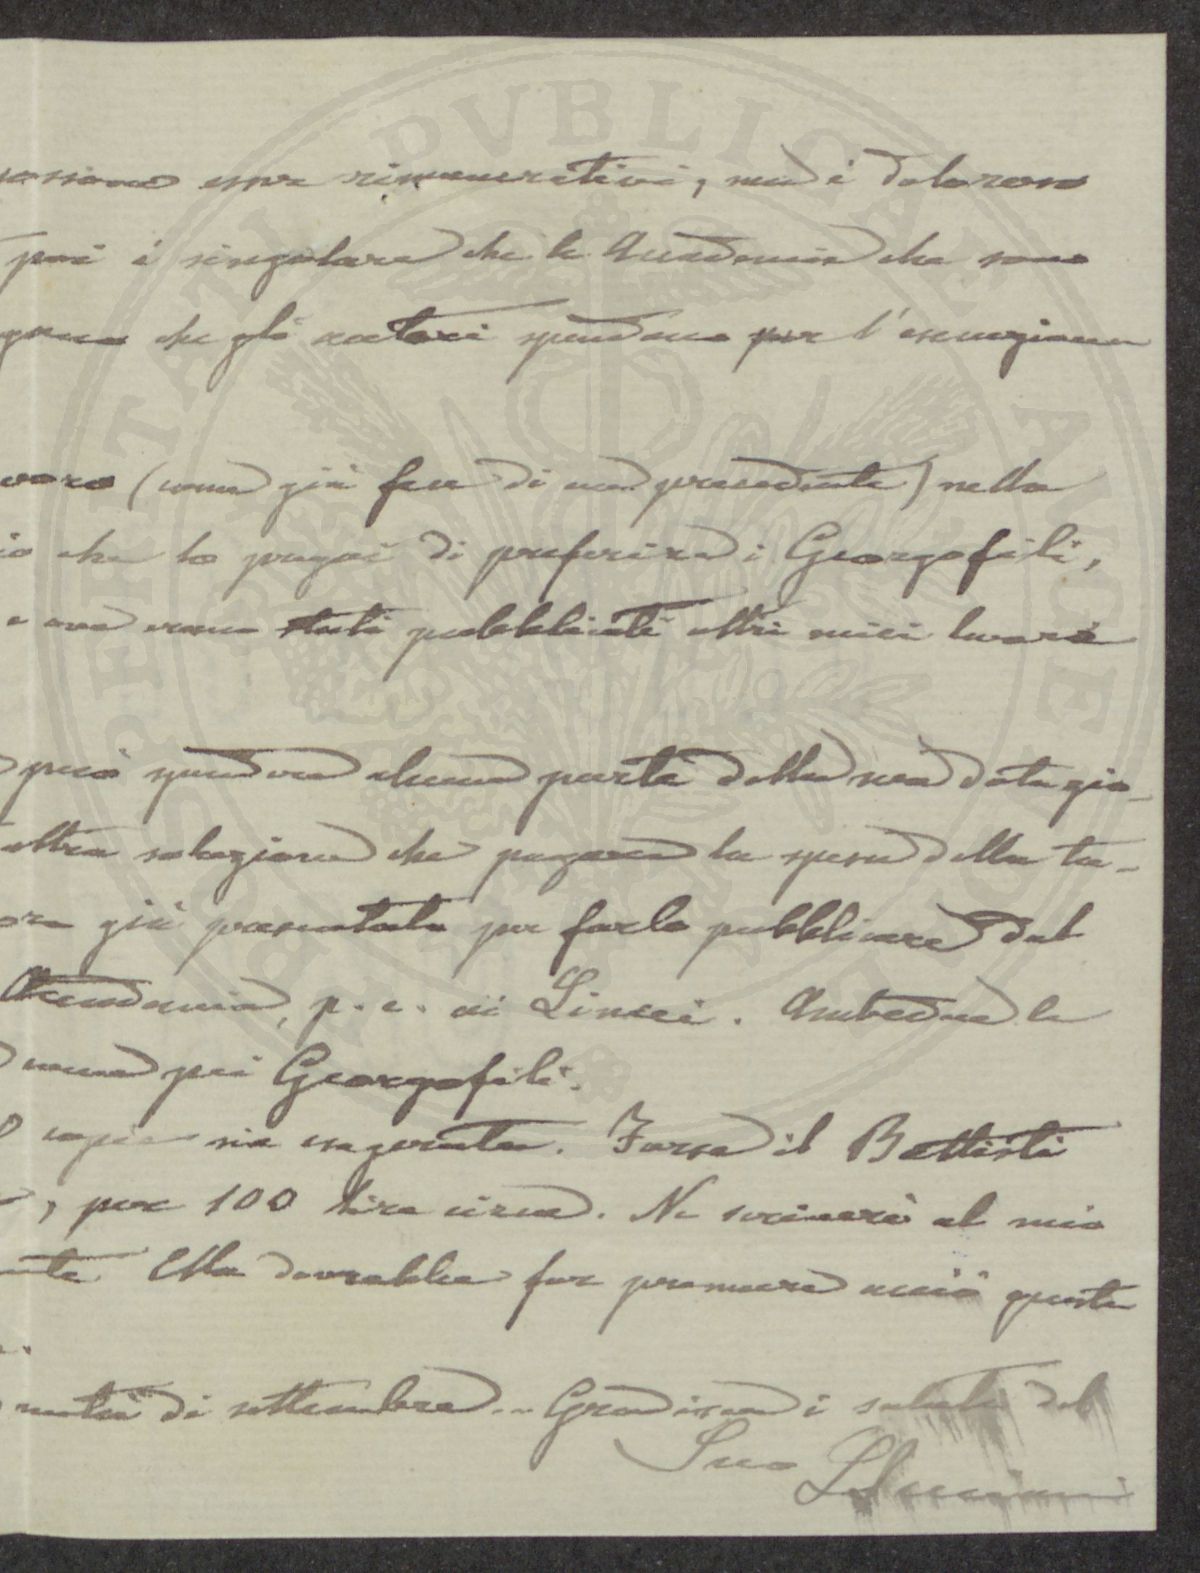 possono esser rimunerativi, ma è doloroso
poi è singolare che le Accademie che sono
che gli autori spendano per l'esecuzione
(come già feci di un precedente) nella
che lo pregai di preferire i Georgofili,
e ove erano stati pubblicati altri miei lavori
può spendere alcuna parte della sua dotazio-
altra soluzione che pagare la spesa delle ta-
già presentato per farlo pubblicare dal
Accademia, p. e. ai Lincei. Ambedue le
come pei Georgofili.
copie sia esagerata. Forse il Battisti
, per 100 lire circa. Ne scriverò al mio
Ella dovrebbe far premure acciò queste
metà di settembre... Gradisca i saluti dal
Suo
PUBLICAE AUGENDAE